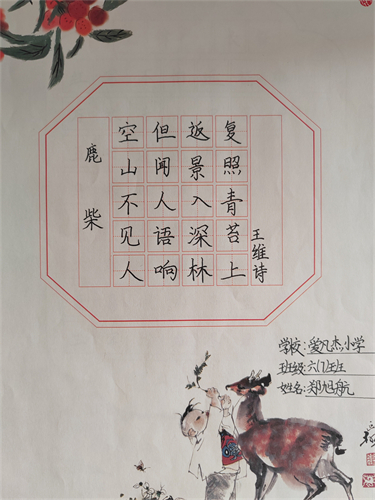 鹿柴
空山不见人
但闻人语响
返景入深林
复照青苔上
王维诗
学校:爱凡杰小学
班级:六(1)班
姓名:郑旭航